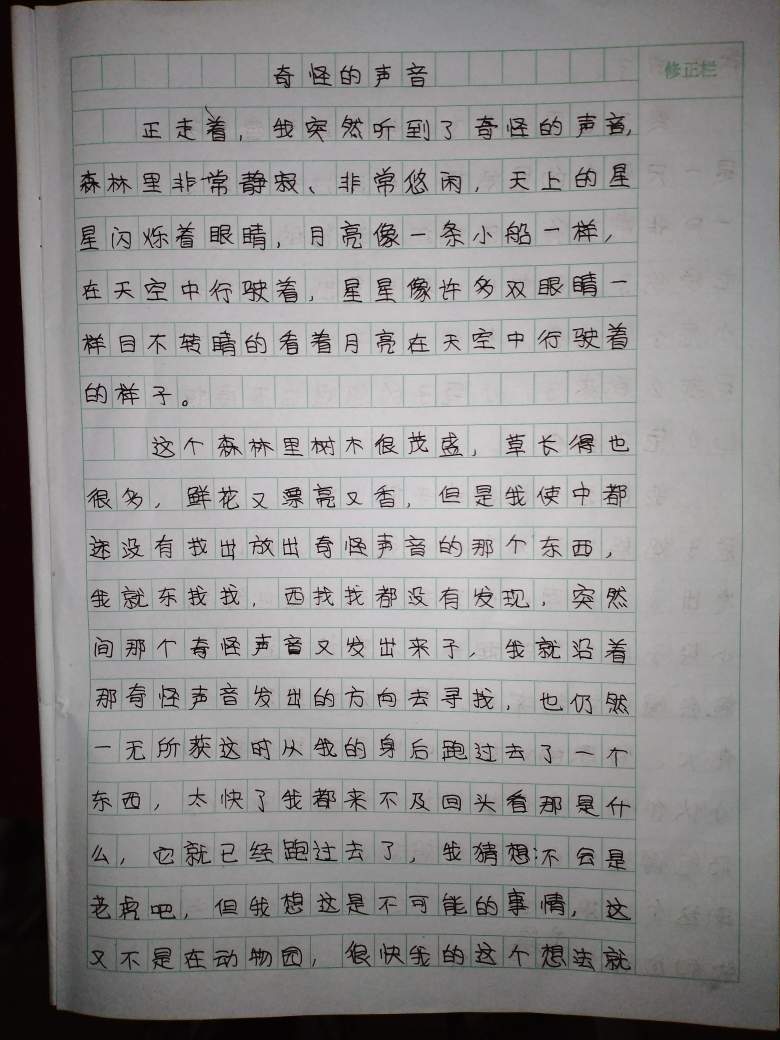 奇怪的声音
修正栏
正走着，我突然听到了奇怪的声音，
森林里非常静寂、非常悠闲，天上的星
星闪烁着眼睛，月亮像一条小船一样，
在天空中行驶着，星星像许多双眼睛一
样目不转睛的看着月亮在天空中行驶着
的样子。
这个森林里树木很茂盛，草长得也
很多，鲜花又漂亮又香，但是我使中都
还没有找出放出奇怪声音的那个东西，
我就东找找，西找找都没有发现，突然
间那个奇怪声音又发出来了，我就沿着
那奇怪声音发出的方向去寻找，也仍然
一无所获这时从我的身后跑过去了一个
东西，太快了我都来不及回头看那是什
么，它就已经跑过去了，我猜想：不会是
老虎吧，但我想这是不可能的事情，这
又不是在动物园，很快我的这个想法就